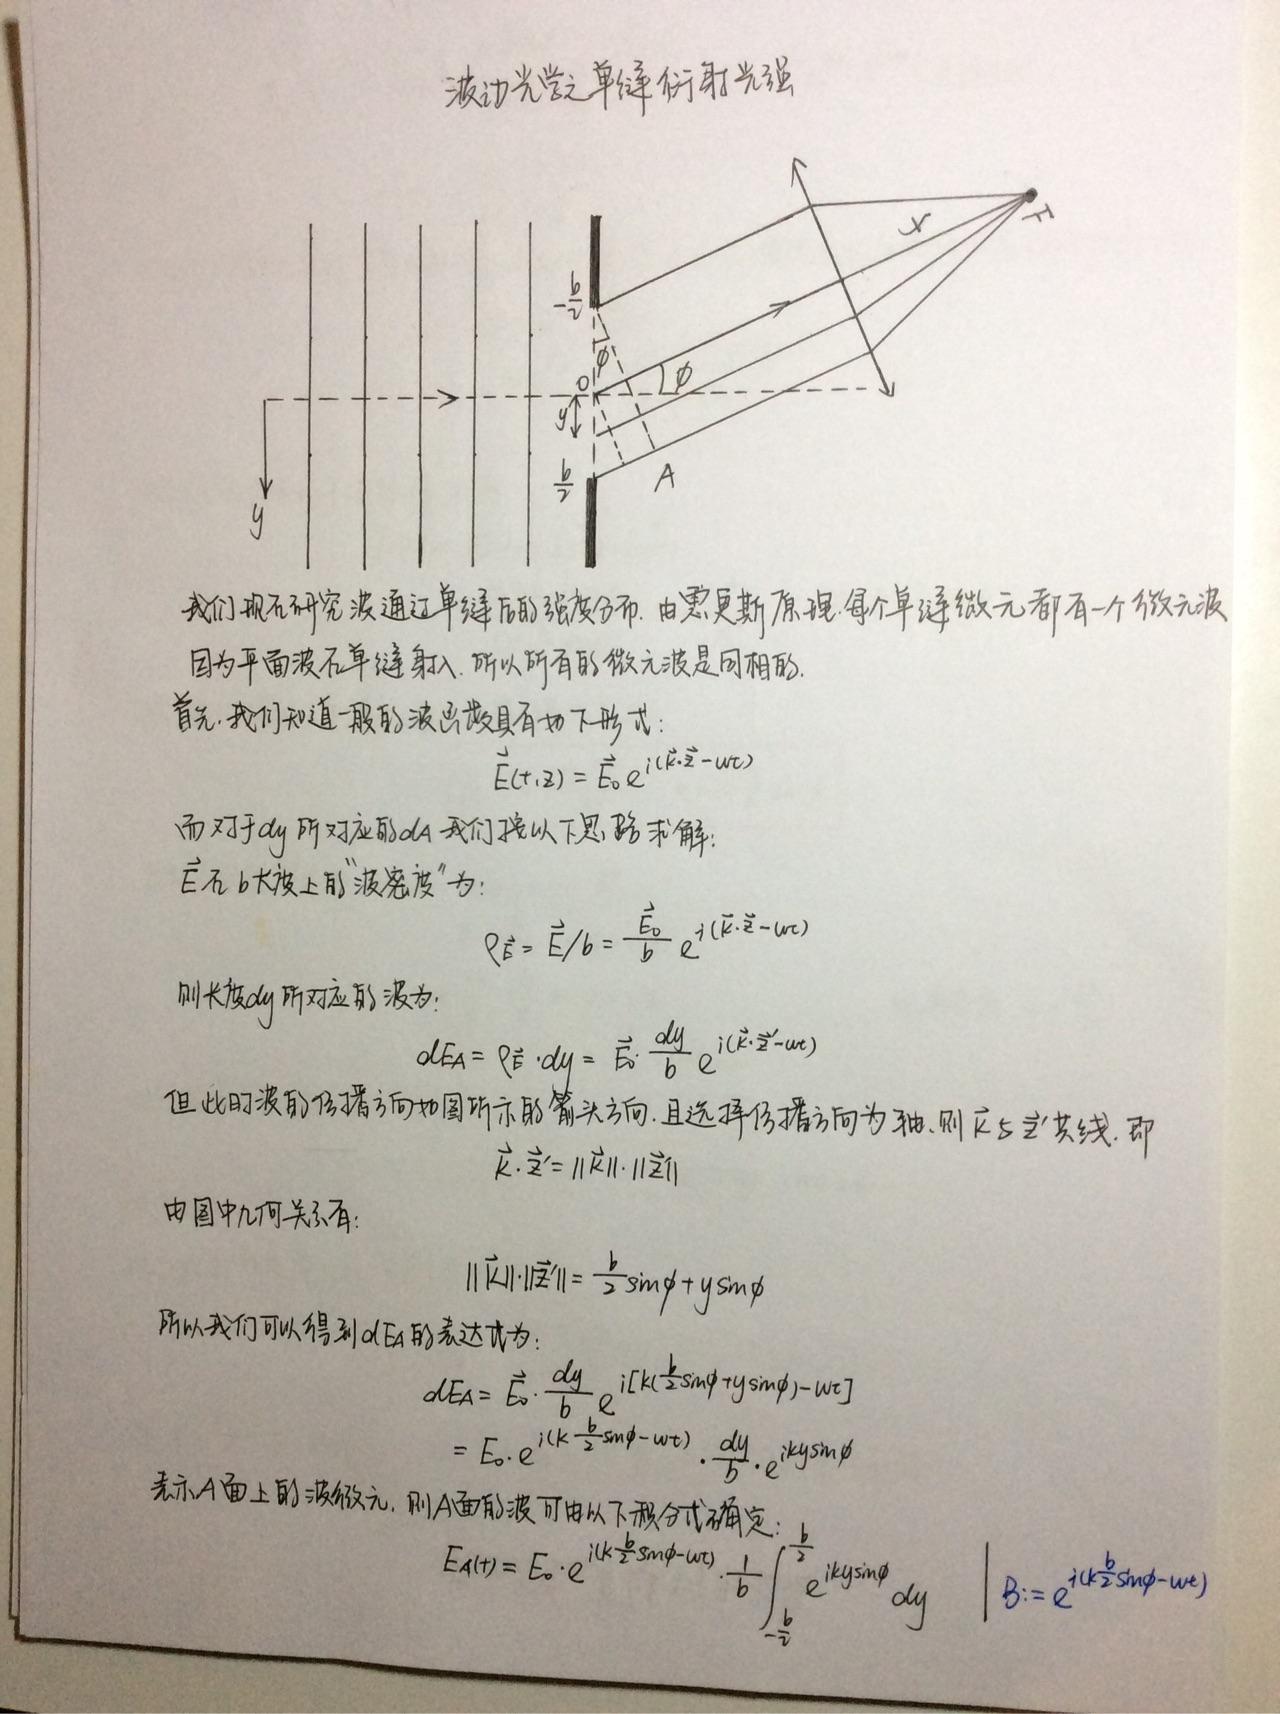 波动光学之单缝衍射光强
-b/2
φ
O
φ
y
b/2
A
x
F
y
我们现在研究波通过单缝后的强度分布. 由惠更斯原理. 每个单缝微元都有一个微元波
因为平面波在单缝射入. 所以所有的微元波是同相的.
首先. 我们知道一般的波函数具有如下形式:
E⃗(t,z) = E⃗₀ e^{i(k⃗·z⃗-ωt)}
而对于dy所对应的dA我们按以下思路求解:
E⃗在b长度上的“波密度”为:
ρE⃗ = E⃗/b = E⃗₀/b e^{i(k⃗·z⃗-ωt)}
则长度dy所对应的波为:
dE_A = ρE⃗·dy = E⃗₀· dy/b e^{i(k⃗·z⃗'-ωt)}
但此时波的传播方向如图所示的箭头方向. 且选择传播方向为z轴. 则k⃗与z⃗'共线. 即
k⃗·z⃗' = ||k⃗||·||z⃗'||
由图中几何关系有:
||k⃗||·||z⃗'|| = b/2 sinφ + y sinφ
所以我们可以得到dE_A的表达式为:
dE_A = E⃗₀· dy/b e^{i[k(b/2 sinφ+y sinφ)-ωt]}
= E₀·e^{i(k b/2 sinφ-ωt)} · dy/b · e^{iky sinφ}
表示A面上的波微元. 则A面的波可由以下积分式确定:
E_A(t) = E₀·e^{i(k b/2 sinφ-ωt)} · 1/b ∫_{-b/2}^{b/2} e^{iky sinφ} dy | B := e^{i(k b/2 sinφ-ωt)}